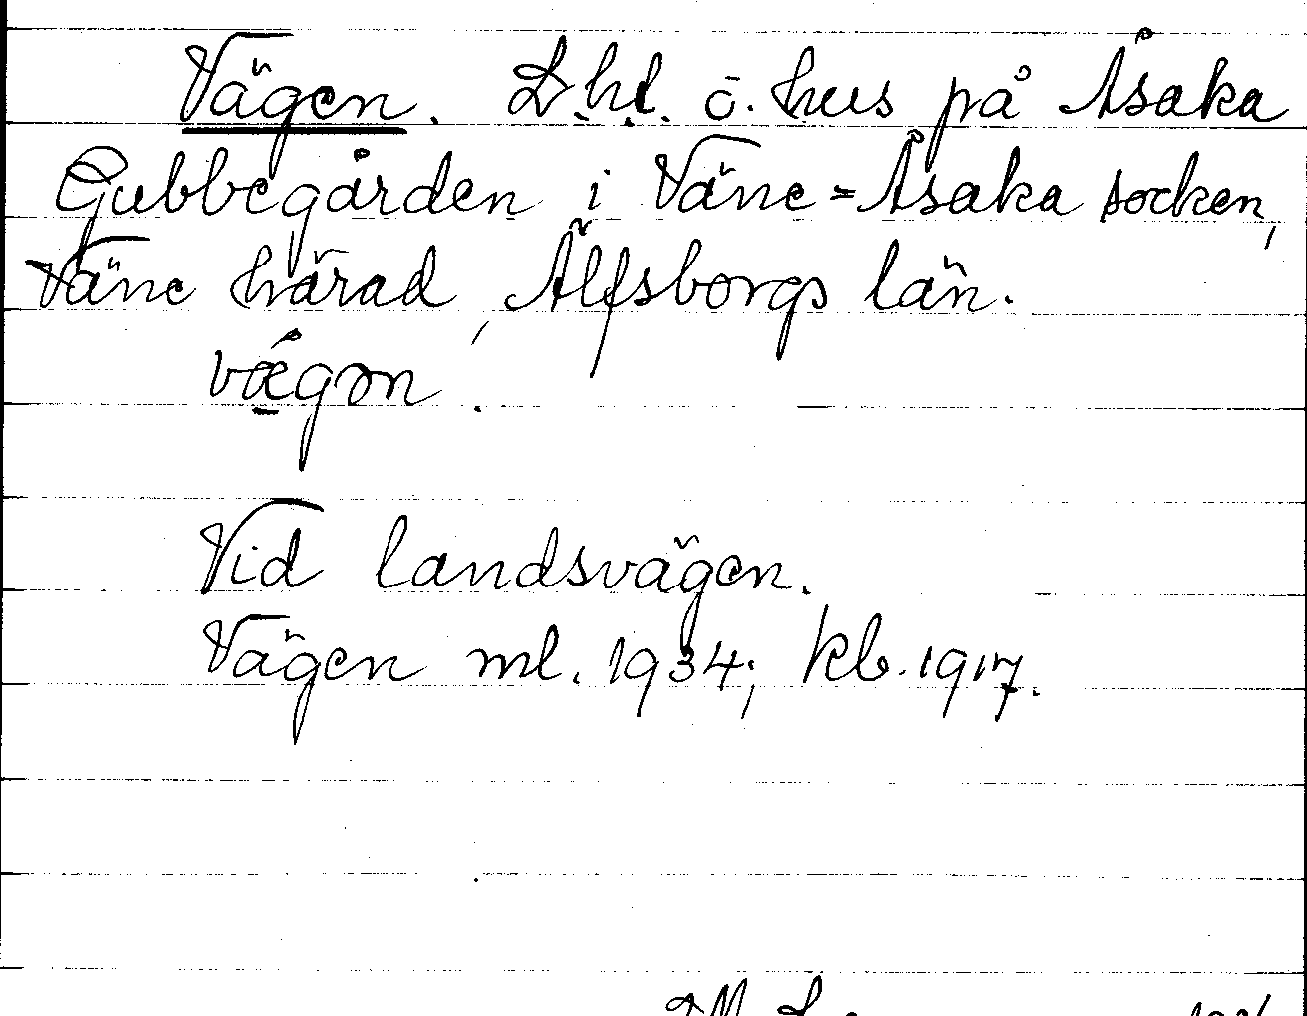 Vägen. Lht. o. hus på Åsaka
Gubbegården i Väne=Åsaka socken,
Väne härad, Älfsborgs län.
væ̀gən.
Vid landsvägen.
Vägen ml. 1934; kb. 1917.